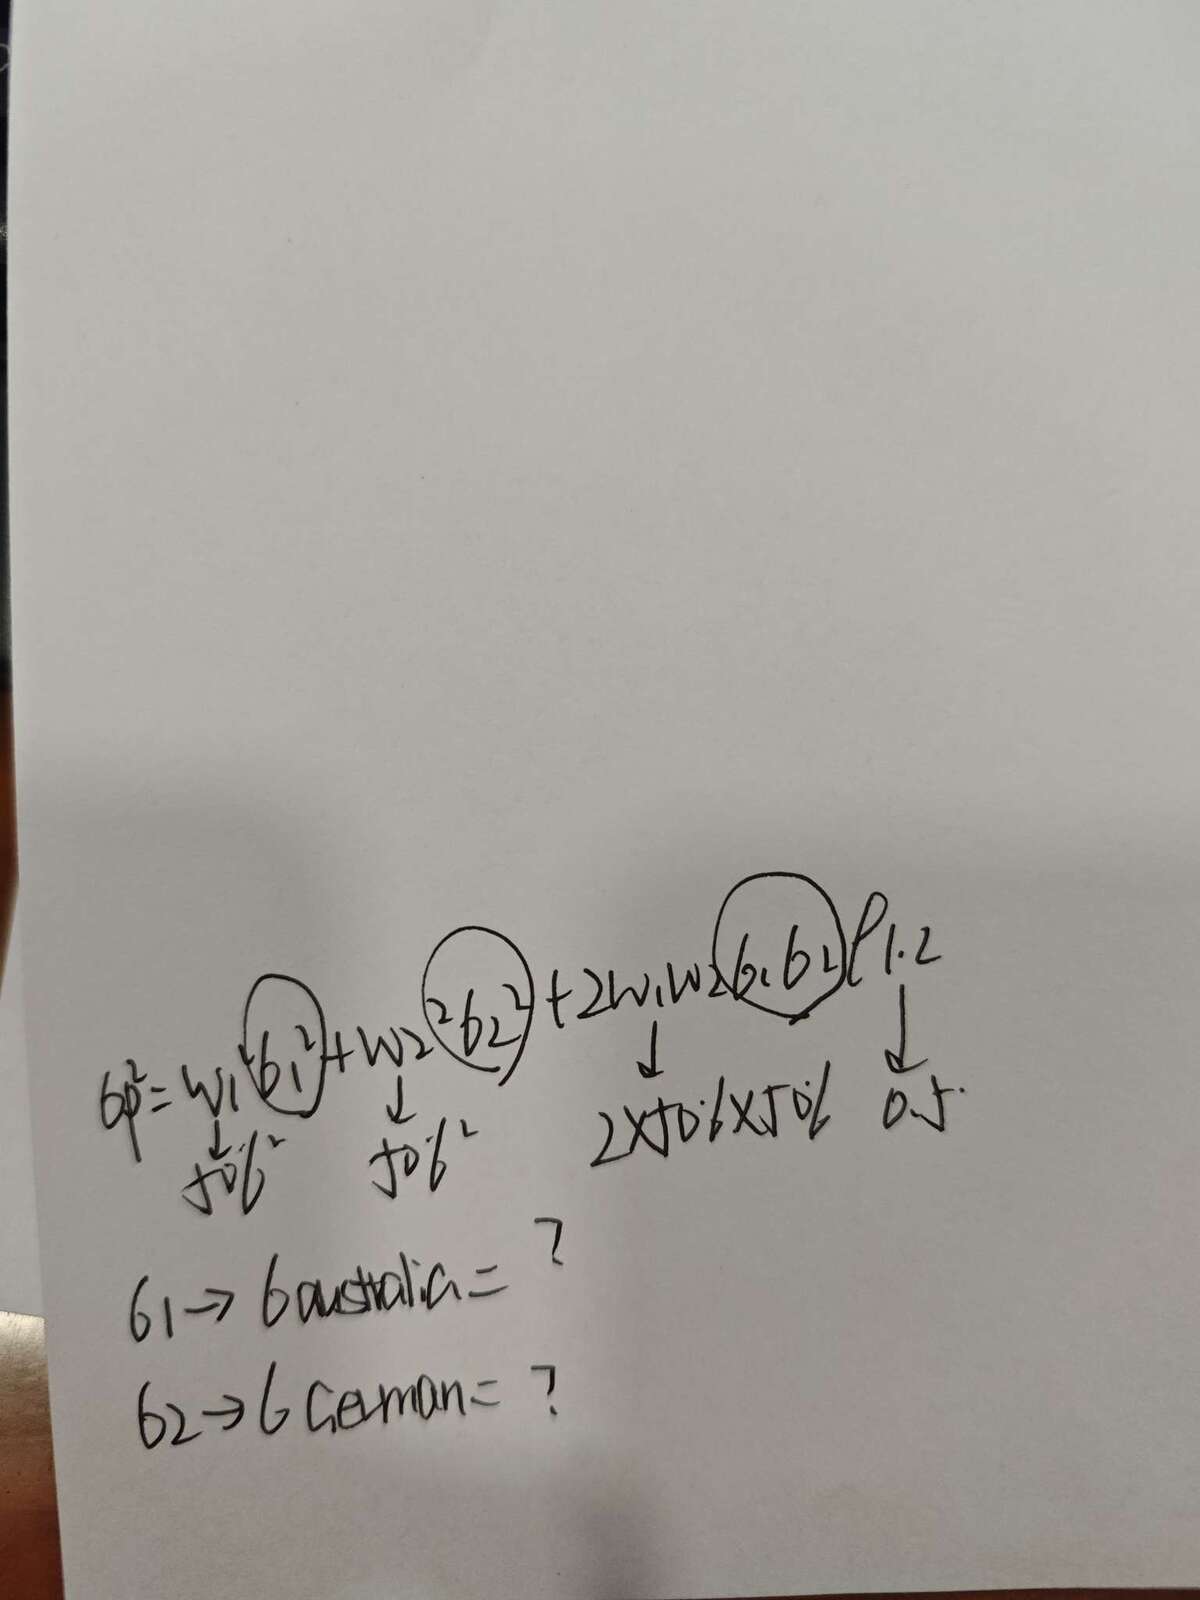 6p²=w₁²6₁²+w₂²6₂²+2w₁w₂6₁6₂ρ1.2
↓ ↓ ↓ ↓
50%² 50%² 2×50%×50% 0.5.
61→6australia=?
62→6German=?